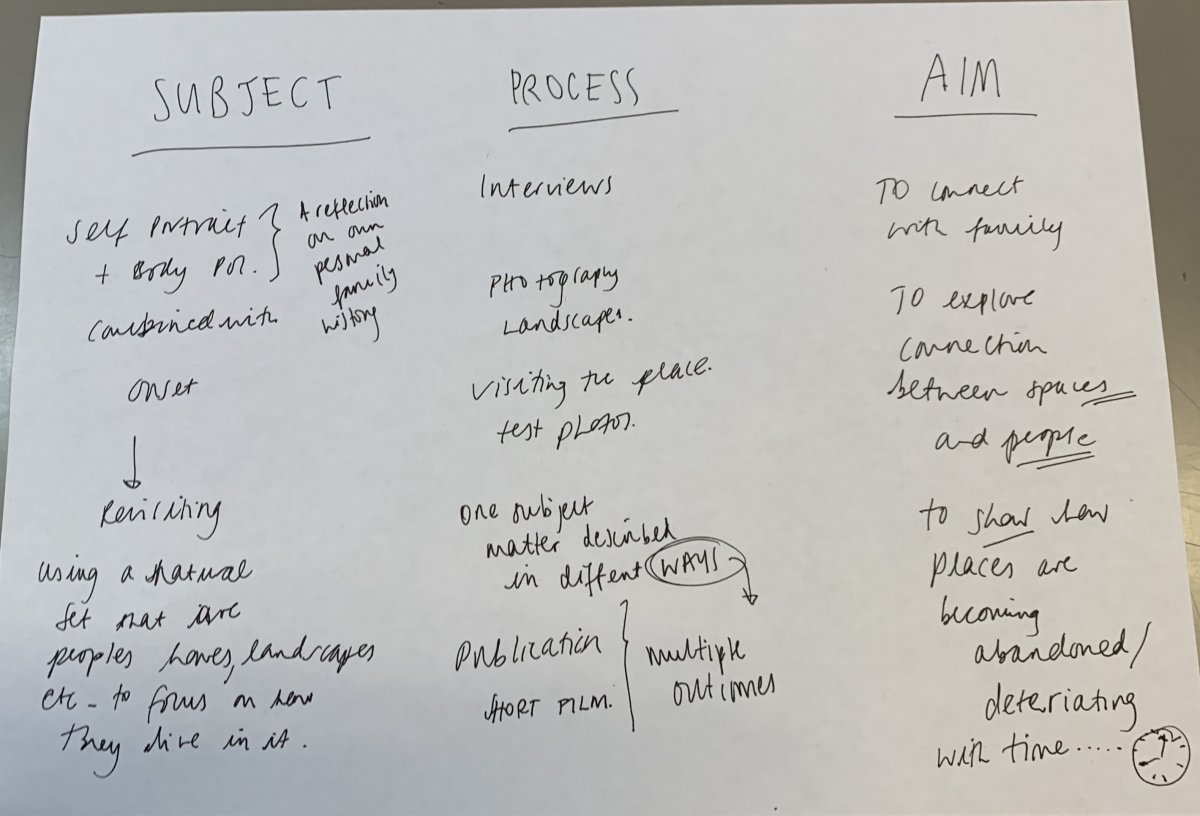 SUBJECT
Self Portrait
+ Body Por.
A reflection
on own
pesonal
family
history
Combined with
Onset
Revisiting
using a natural
set that are
peoples homes, landscapes
etc - to focus on how
they live in it.
PROCESS
Interviews
PHOtography
Landscapes.
Visiting the place.
test photos.
One subject
matter described
in diffent WAYS
Publication
SHORT FILM.
multiple
outcomes
AIM
TO connect
with family
TO explore
connection
between spaces
and people
to show how
places are
becoming
abandoned/
deteriating
with time.....